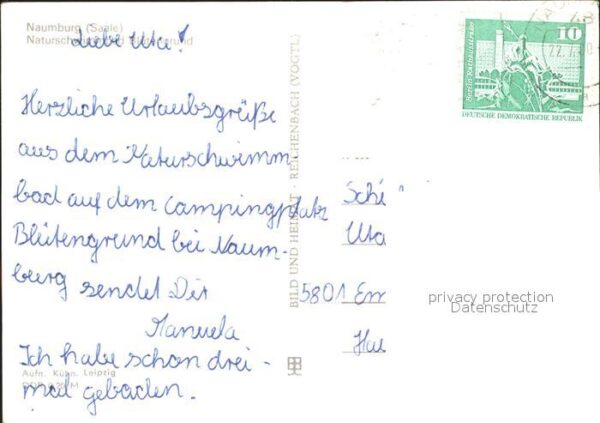 Naumburg (Saale)
Liebe Uta!
Herzliche Urlaubsgrüße
aus dem Naturschwimm
bad auf dem Campingplatz
Blütengrund bei Naum-
burg sendet Dir
Manuela
Ich habe schon drei-
mal gebaden.
Aufn. Kühn, Leipzig
BILD UND HEIMAT REICHENBACH (VOGTL)
10
Berlin, Rathausstraße
DEUTSCHE DEMOKRATISCHE REPUBLIK
Uta
5801
privacy protection
Datenschutz